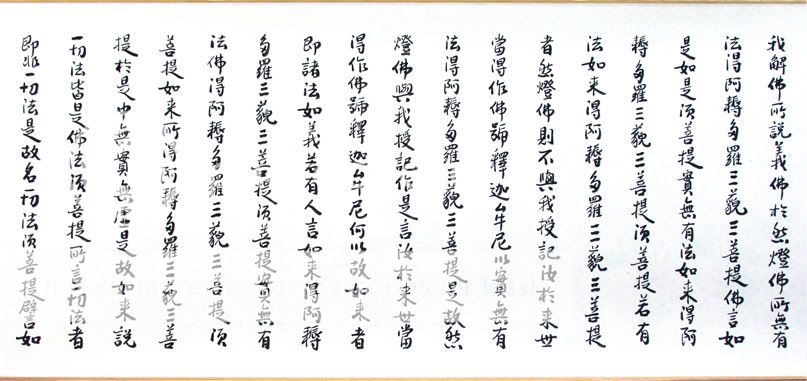 我解佛所說義佛於然燈佛所無有
法得阿耨多羅三藐三菩提佛言如
是如是須菩提實無有法如来得阿
耨多羅三藐三菩提須菩提若有
法如来得阿耨多羅三藐三菩提
者然燈佛則不與我授記汝於来世
當得作佛號釋迦牟尼以實無有
法得阿耨多羅三藐三菩提是故然
燈佛與我授記作是言汝於来世當
得作佛號釋迦牟尼何以故如来者
即諸法如義若有人言如来得阿耨
多羅三藐三菩提須菩提實無有
法佛得阿耨多羅三藐三菩提須
菩提如来所得阿耨多羅三藐三菩
提於是中無實無虛是故如来說
一切法皆是佛法須菩提所言一切法者
即非一切法是故名一切法須菩提譬如